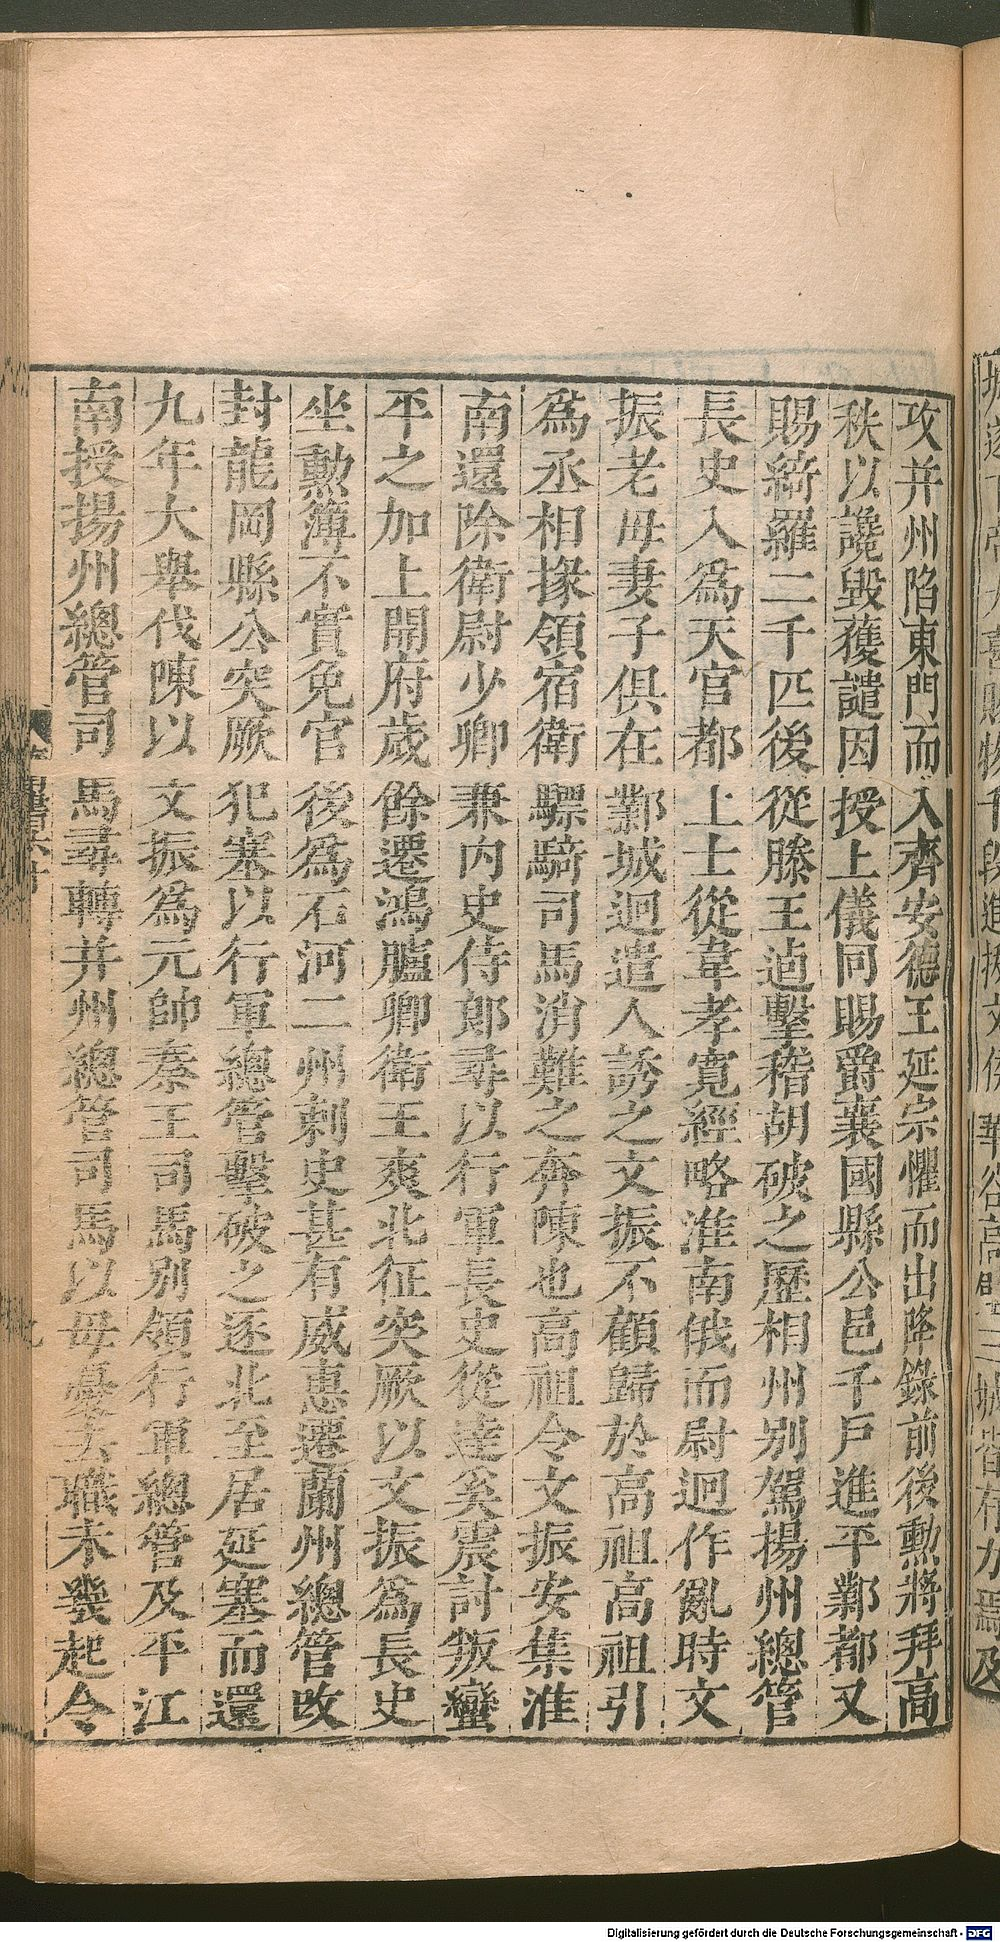 攻并州陷東門而入齊安德王延宗懼而出降錄前後勳將拜高
秩以讒毀獲譴因授上儀同賜爵襄國縣公邑千戸進平鄴都又
賜綺羅二千匹後從滕王逌擊稽胡破之歷相州別駕揚州總管
長史入爲天官都上士從韋孝寬經略淮南俄而尉迥作亂時文
振老母妻子俱在鄴城迥遣人誘之文振不顧歸於高祖高祖引
爲丞相掾領宿衛驃騎司馬消難之奔陳也高祖令文振安集淮
南還除衛尉少卿兼內史侍郎尋以行軍長史從達奚震討叛蠻
平之加上開府歲餘遷鴻臚卿衛王爽北征突厥以文振爲長史
坐勳簿不實免官後爲石河二州刺史甚有威惠遷蘭州總管改
封龍岡縣公突厥犯塞以行軍總管擊破之逐北至居延塞而還
九年大舉伐陳以文振爲元帥秦王司馬別領行軍總管及平江
南授揚州總管司馬尋轉并州總管司馬以母憂去職未幾起令
Digitalisierung gefördert durch die Deutsche Forschungsgemeinschaft - DFG